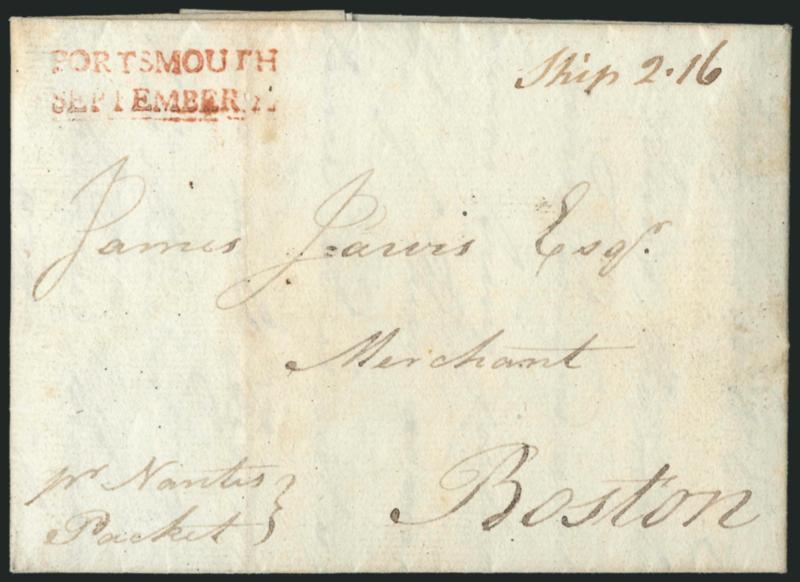 PORTSMOUTH
SEPTEMBER
Ship 2.16
James Jarvis Esqr.
Merchant
Boston
pr Nantes
Packet